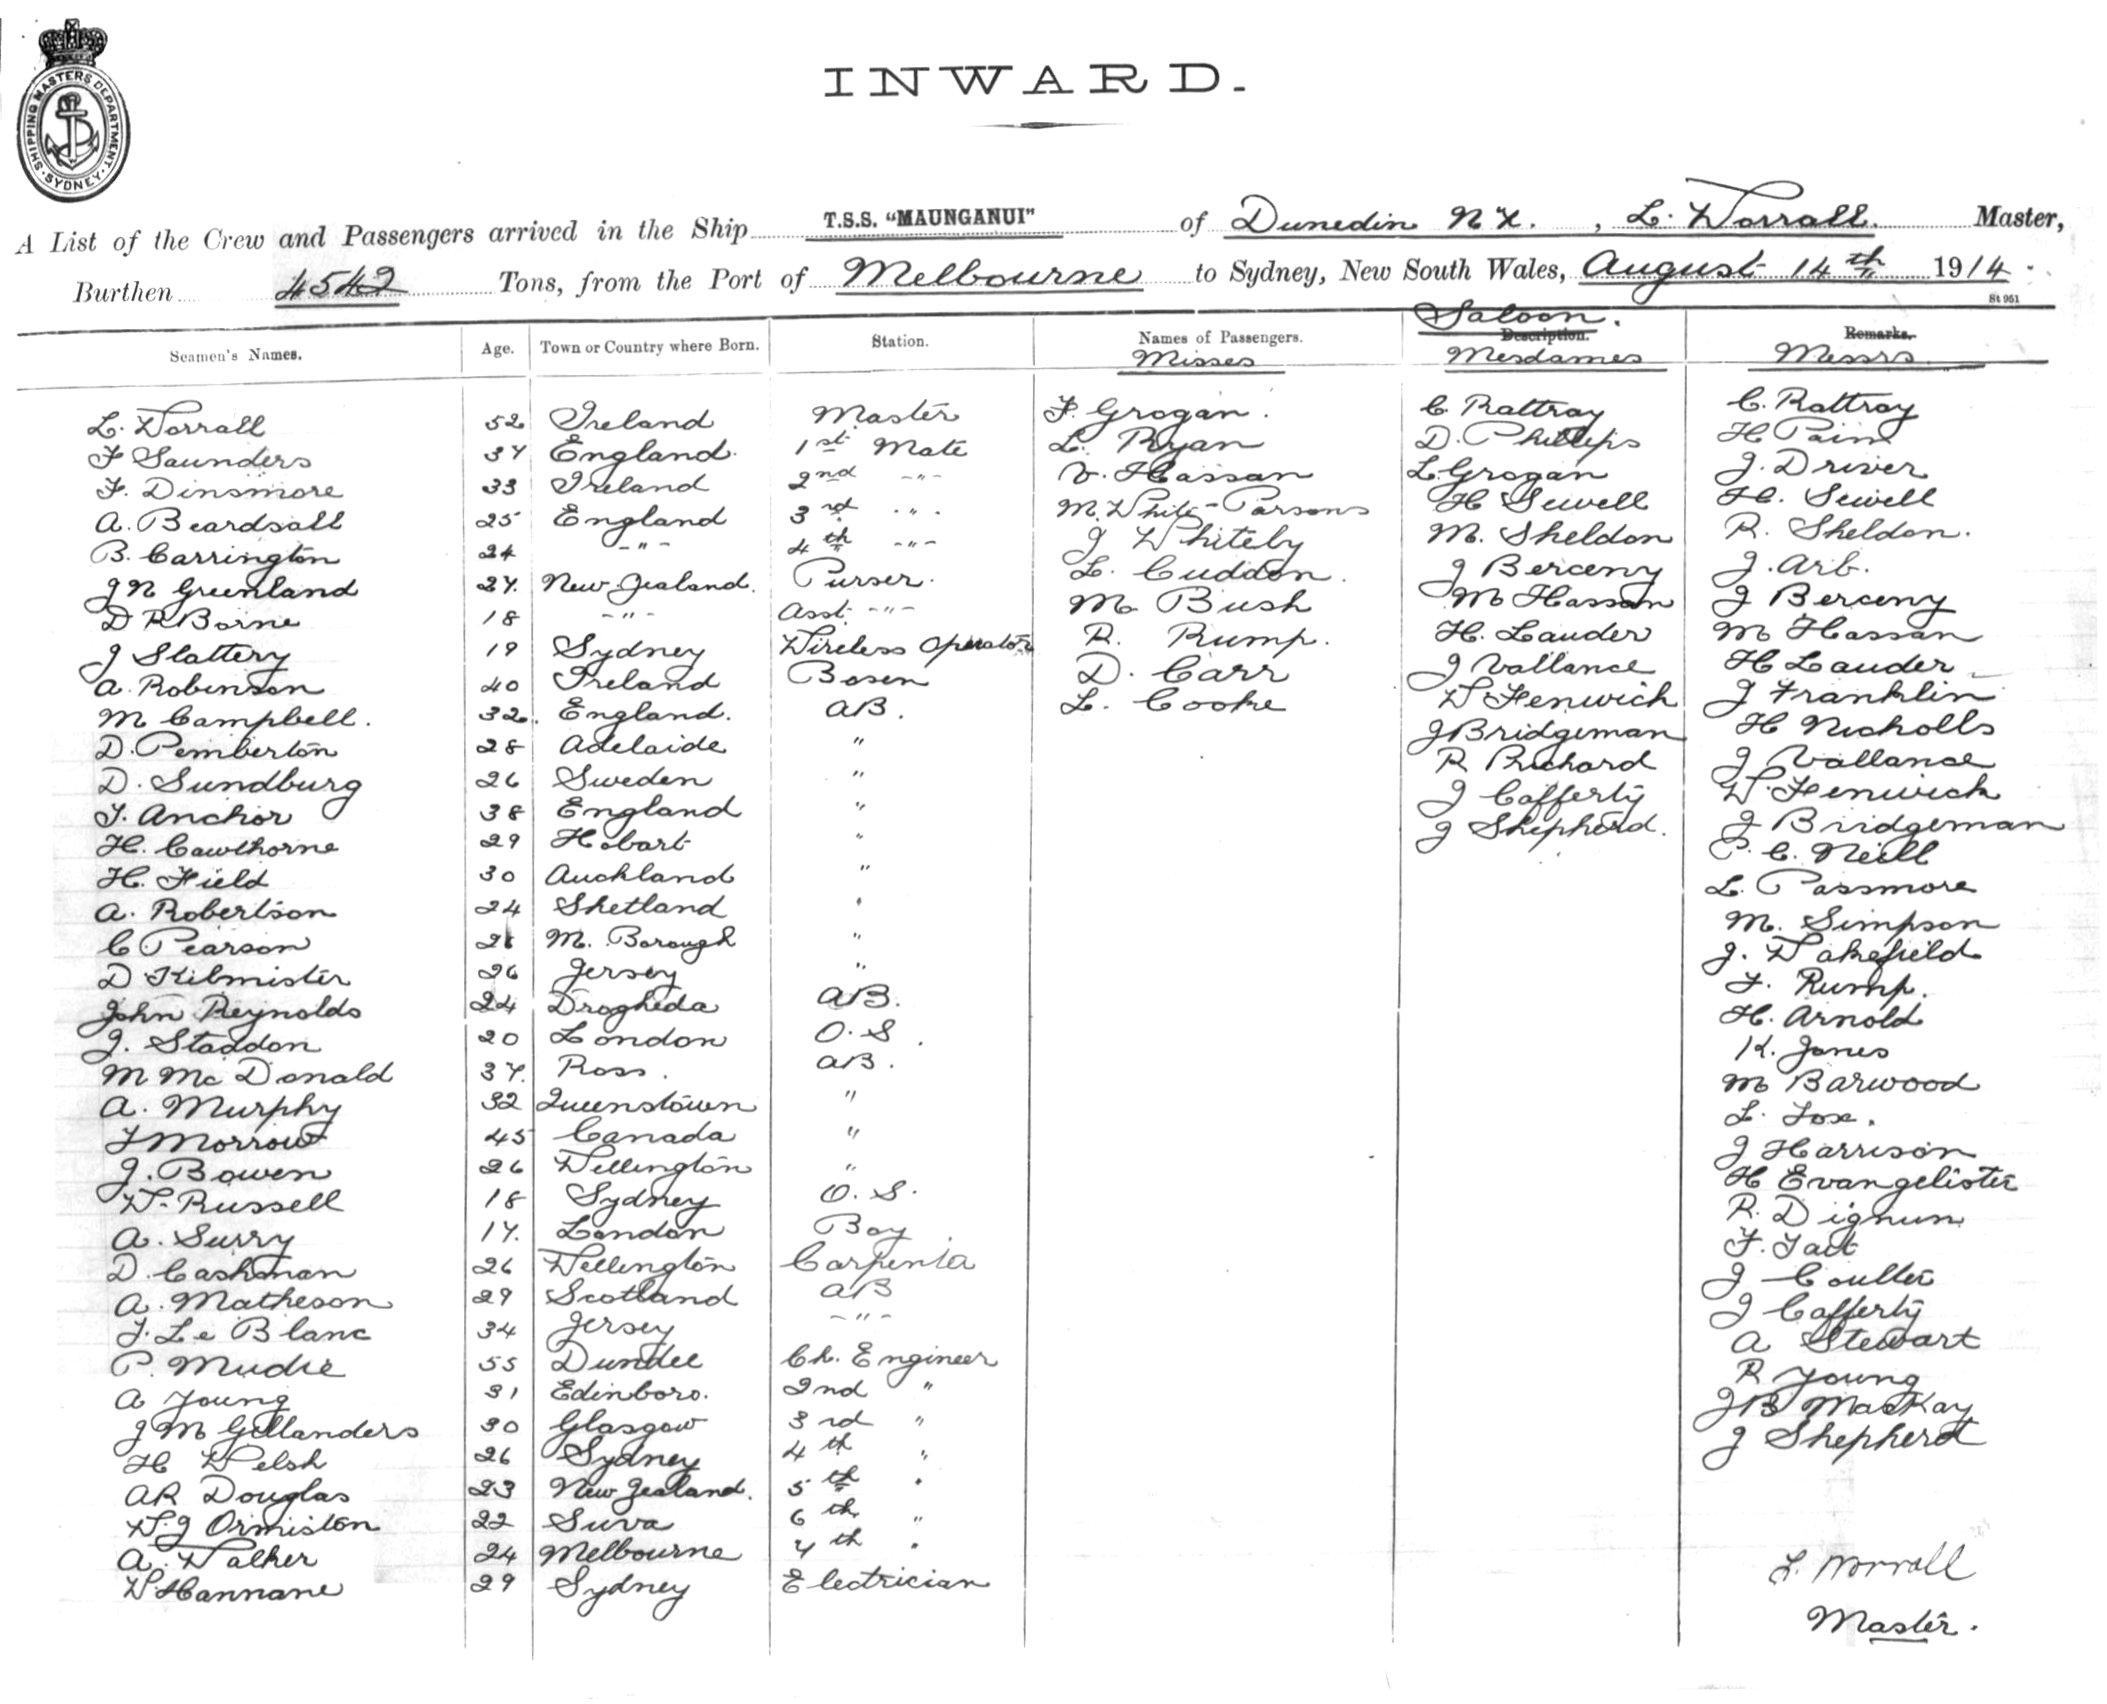 SHIPPING MASTERS DEPARTMENT
SYDNEY
INWARD.
A List of the Crew and Passengers arrived in the Ship T.S.S. "MAUNGANUI" of Dunedin N.Z., L. Worrall. Master,
Burthen 4542 Tons, from the Port of Melbourne to Sydney, New South Wales, August 14th 1914.
St 951
Saloon.
Seamen's Names. Age. Town or Country where Born. Station. Names of Passengers. Description. Remarks.
Misses Mesdames Messrs
L. Worrall 52 Ireland Master F. Grogan. C. Rattray C. Rattray
F Saunders 37 England. 1st Mate L. Ryan D. Phillips H Pain
F. Dinsmore 33 Ireland 2nd -"- V. Hassan L. Grogan J. Driver
A. Beardsall 25 England 3rd -"- M. White-Parsons H Sewell H. Sewell
B. Carrington 24 -"- 4th -"- J Whiteby M. Sheldon R. Sheldon.
J N Greenland 27. New Zealand. Purser. L. Cuddon. J Berceny J. Arb.
D R Borne 18 -"- Asst. -"- M Bush M Hassan J Berceny
J Slattery 19 Sydney Wireless Operator R. Rump. H. Lauder M Hassan
A. Robinson 40 Ireland Bosen D. Carr J Vallance H Lauder
M Campbell. 32. England. AB. L. Cooke W Fenwick J Franklin
D. Pemberton 28 Adelaide " J Bridgeman H Nicholls
D. Sundburg 26 Sweden " R Richard J Vallance
T. Anchor 38 England " J Cafferty W. Fenwick
H. Cawthorne 29 Hobart " J Shepherd. J Bridgeman
H. Field 30 Auckland " P. C. Neill
A. Robertson 24 Shetland " L. Passmore
C Pearson M. Borough " M. Simpson
D Kilmister 26 Jersey " J. Wakefield
John Reynolds 24 Drogheda AB. F. Rump.
J. Staddon 20 London O. S. H. Arnold
M Mc Donald 37. Ross. AB. K. Jones
A. Murphy 32 Queenstown " M Barwood
T Morrow 45 Canada " L. Fox.
J. Bowen 26 Wellington " J Harrison
W. Russell 18 Sydney O. S. H Evangelister
A. Surry 17. London Boy R. Dignum
D. Cashman 26 Wellington Carpenter F. Tait
A. Matheson 29 Scotland AB J Coulter
J. Le Blanc 34 Jersey -"- J Cafferty
P. Mudie 55 Dundee Ch. Engineer A Stewart
A Young 31 Edinboro. 2nd " R Young
J M Gillanders 30 Glasgow 3rd " J B MacKay
H Welsh 26 Sydney 4th " J Shepherd
AR Douglas 23 New Zealand. 5th "
W. J Ormiston 22 Suva 6th "
A. Walker 24 Melbourne 7th "
W. Hannane 29 Sydney Electrician
L. Worrall
Master.